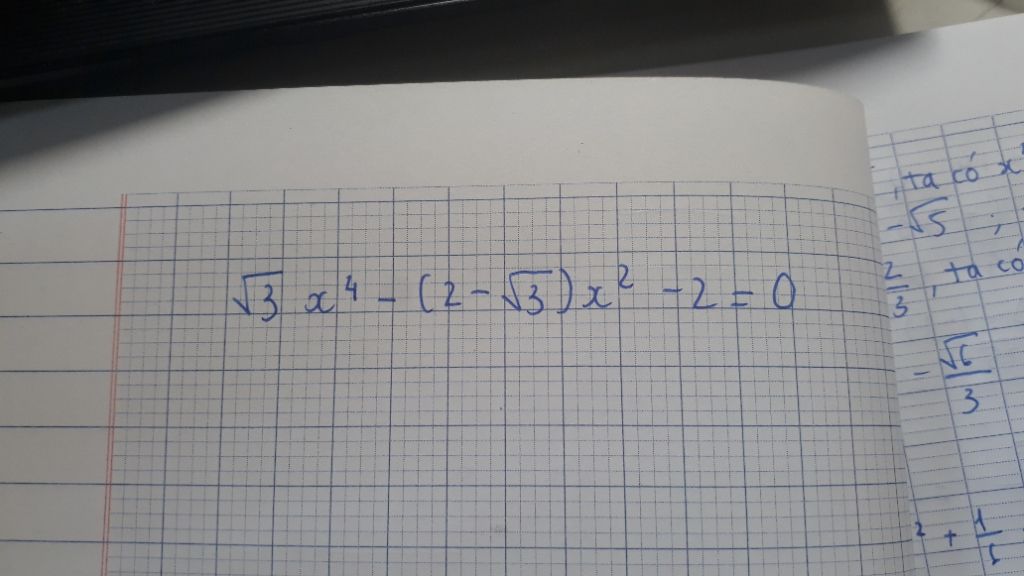 √3 x⁴ - (2 - √3)x² - 2 = 0
, ta có x
- √5 ;
2/3, ta có
- √6/3
² + 1